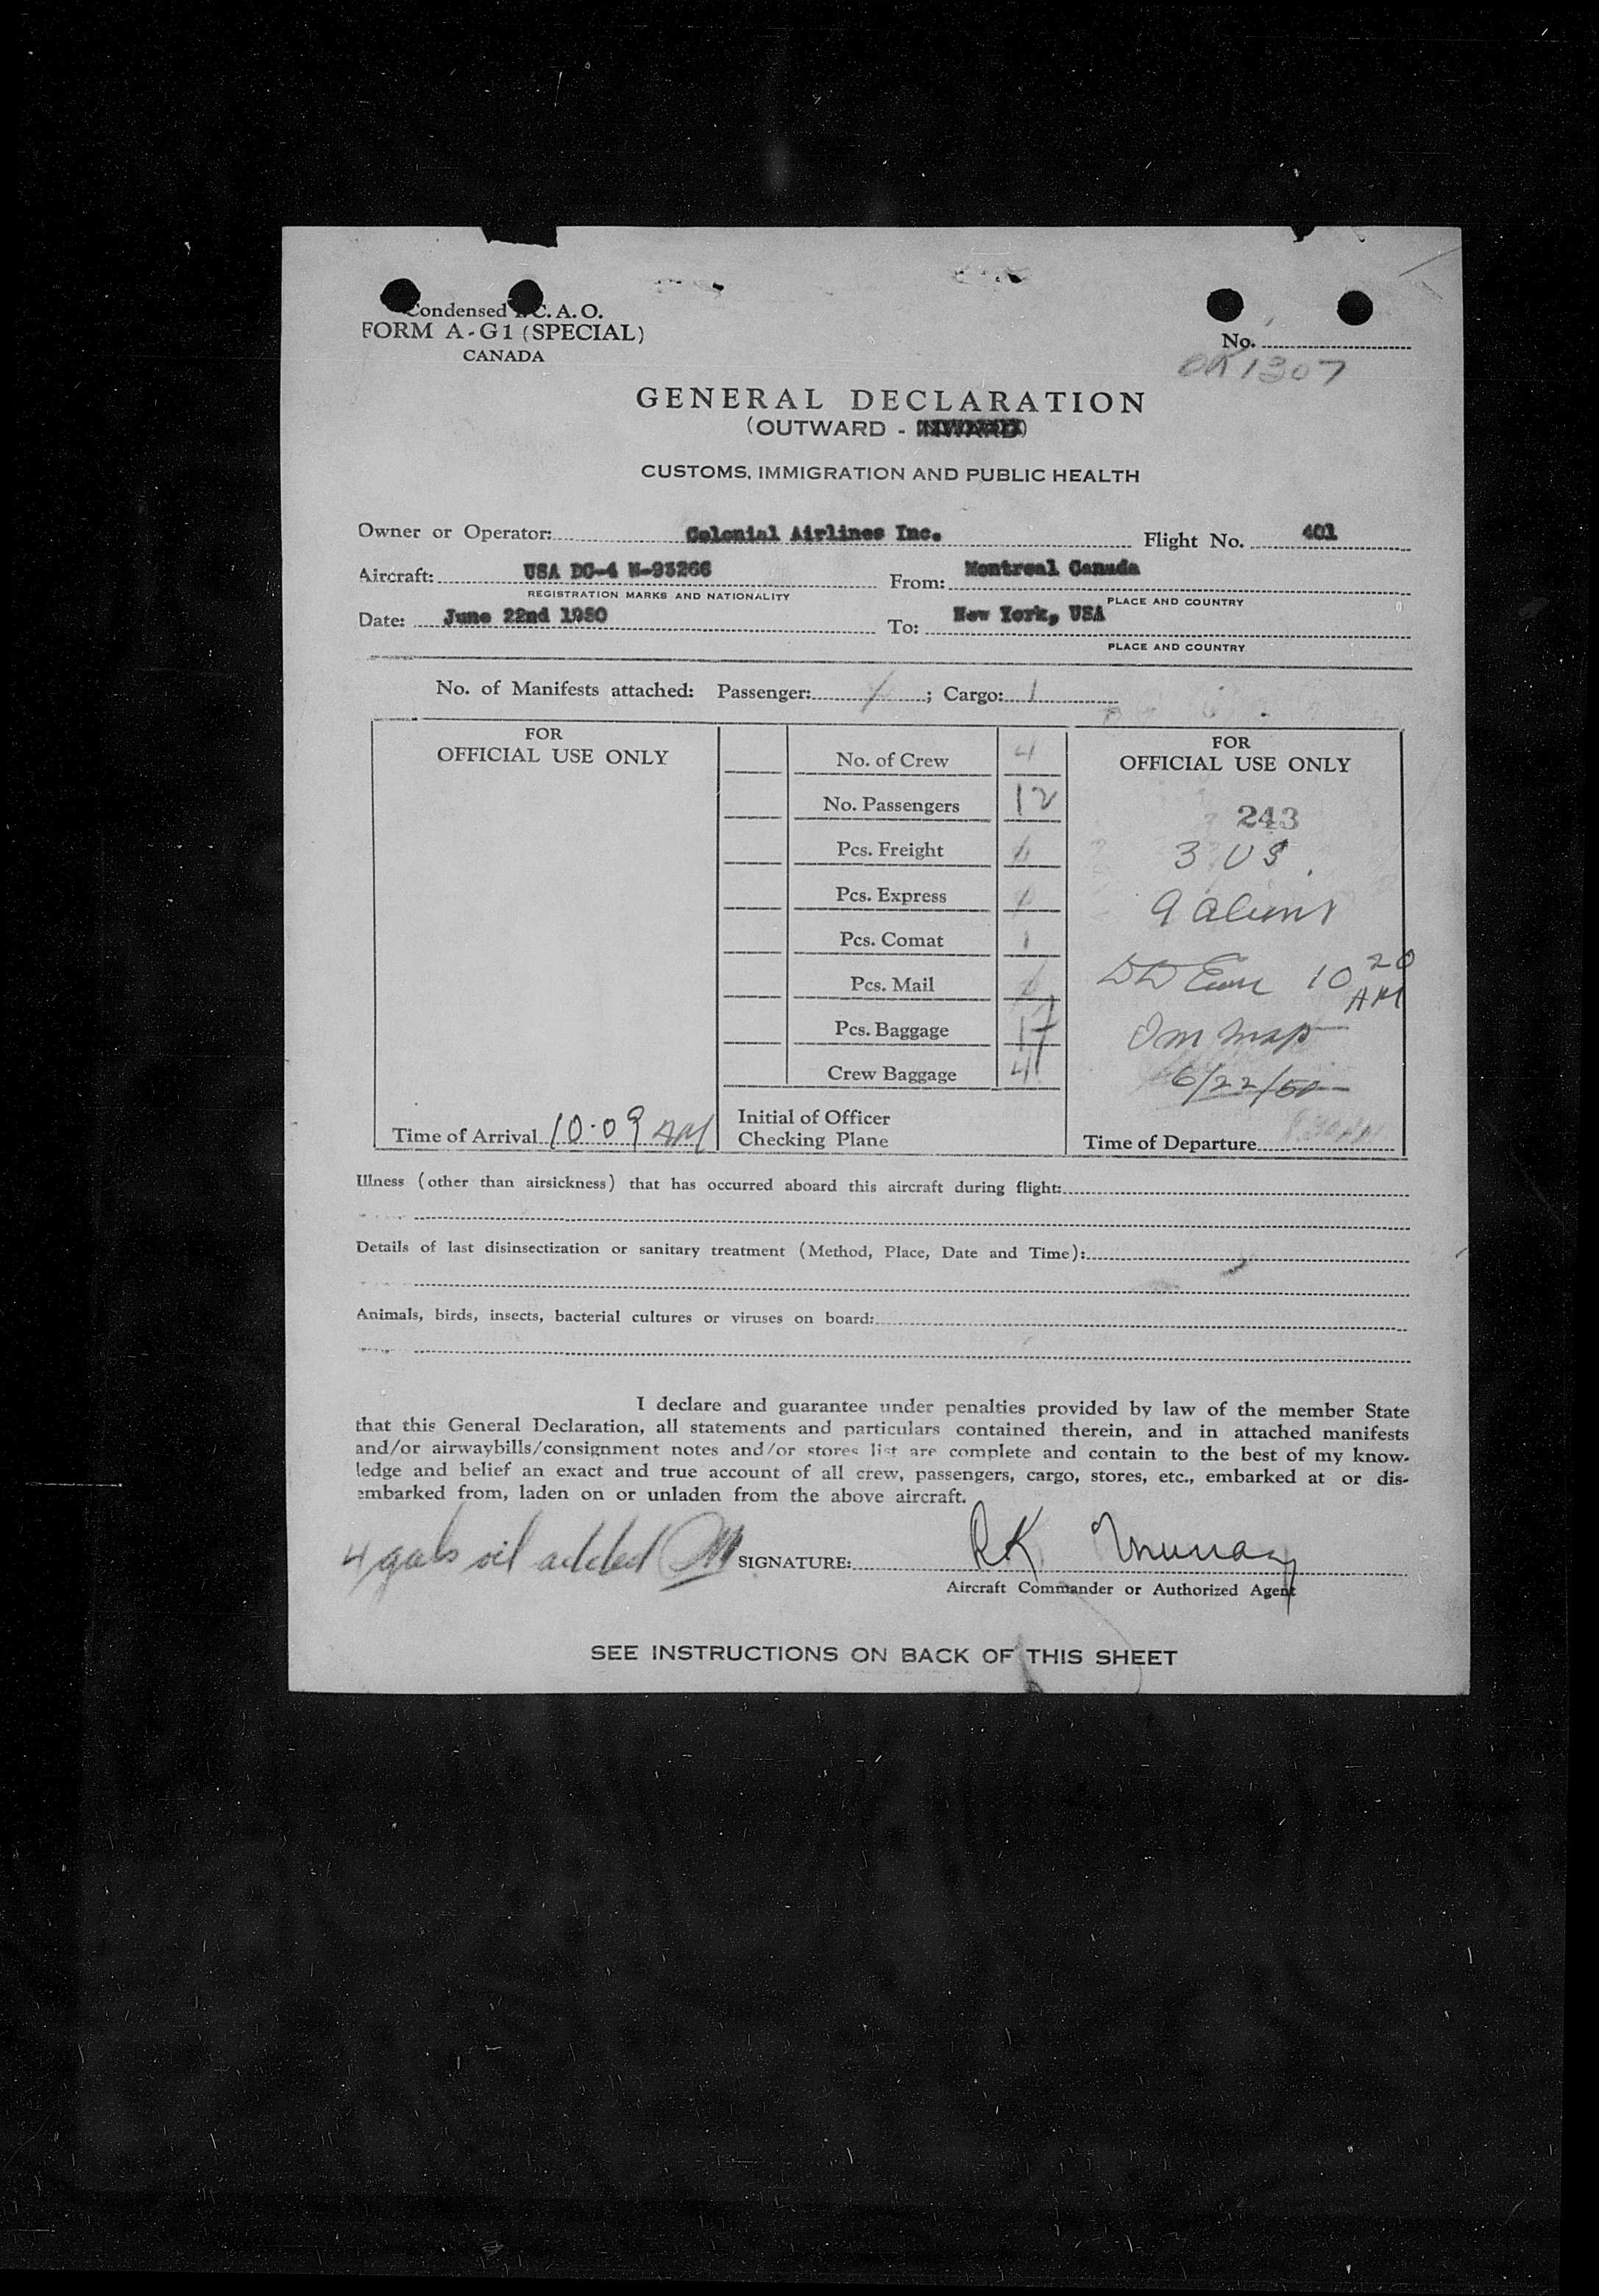 Condensed I.C.A.O.
FORM A-G1 (SPECIAL)
CANADA
No.
1307
GENERAL DECLARATION
(OUTWARD - INWARD)
CUSTOMS, IMMIGRATION AND PUBLIC HEALTH
Owner or Operator: Colonial Airlines Inc. Flight No. 401
Aircraft: USA DC-4 N-93266 From: Montreal Canada
REGISTRATION MARKS AND NATIONALITY PLACE AND COUNTRY
Date: June 22nd 1950 To: New York, USA
PLACE AND COUNTRY
No. of Manifests attached: Passenger: 1 ; Cargo: 1
FOR
OFFICIAL USE ONLY
No. of Crew 4
No. Passengers 12
Pcs. Freight
Pcs. Express
Pcs. Comat 1
Pcs. Mail
Pcs. Baggage 17
Crew Baggage 4
FOR
OFFICIAL USE ONLY
243
3 US
9 aliens
10 20 AM
6/22/50
Time of Arrival 10.09 AM
Initial of Officer
Checking Plane
Time of Departure
Illness (other than airsickness) that has occurred aboard this aircraft during flight:
Details of last disinsectization or sanitary treatment (Method, Place, Date and Time):
Animals, birds, insects, bacterial cultures or viruses on board:
I declare and guarantee under penalties provided by law of the member State
that this General Declaration, all statements and particulars contained therein, and in attached manifests
and/or airwaybills/consignment notes and/or stores list are complete and contain to the best of my know-
ledge and belief an exact and true account of all crew, passengers, cargo, stores, etc., embarked at or dis-
embarked from, laden on or unladen from the above aircraft.
4 gals oil added
SIGNATURE: RK Murray
Aircraft Commander or Authorized Agent
SEE INSTRUCTIONS ON BACK OF THIS SHEET